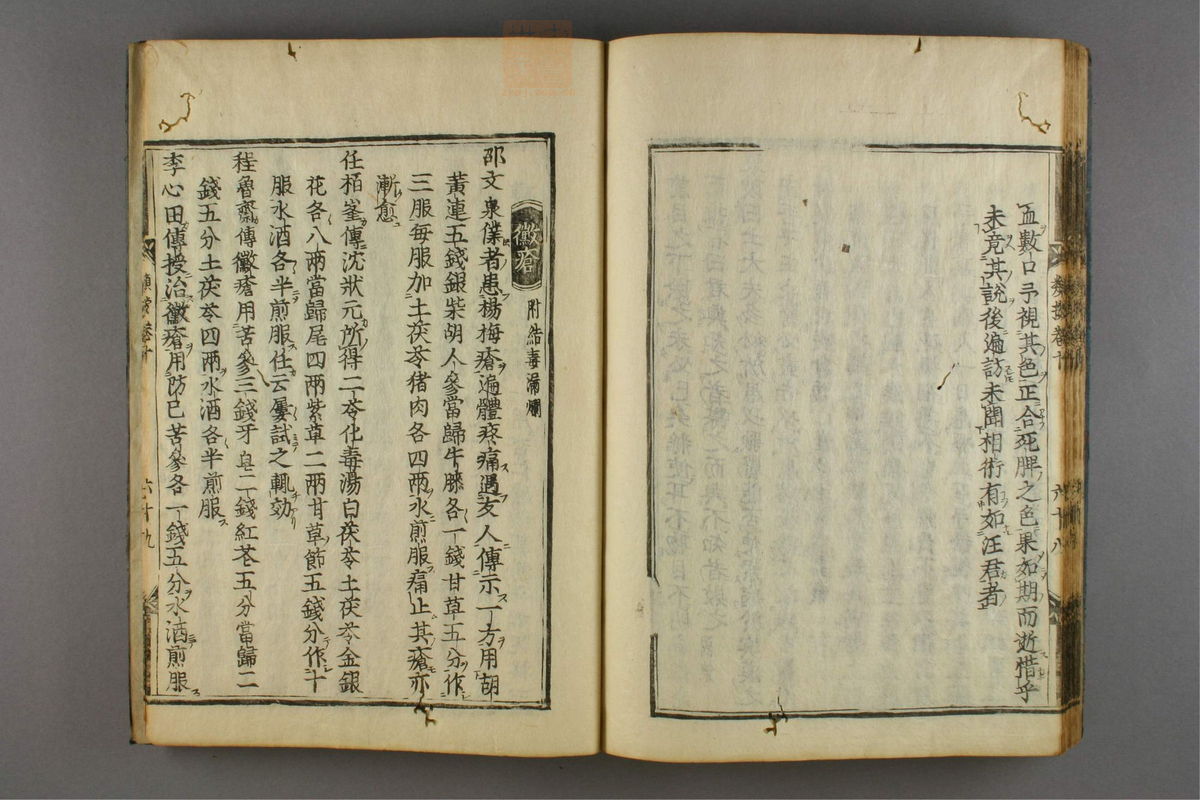 血數口予視其色正合死脾之色果如期而逝惜乎
未竟其說後遍訪未聞相術有如汪君者
卷十
六十八
黴瘡
附結毒漏爛
邵文泉僕者患楊梅瘡遍體疼痛遇友人傳示一方用胡
黃連五錢銀柴胡人參當歸牛膝各一錢甘草五分作
三服每服加土茯苓猪肉各四兩水煎服痛止其瘡亦
漸愈
任栢峯傳沈狀元所得二苓化毒湯白茯苓土茯苓金銀
花各八兩當歸尾四兩紫草二兩甘草節五錢分作十
服水酒各半煎服任云屢試之輒効
程魯齋傳黴瘡用苦參三錢牙皂二錢紅花五分當歸二
錢五分土茯苓四兩水酒各半煎服
李心田傳授治黴瘡用防已苦參各一錢五分水酒煎服
卷十
六十九